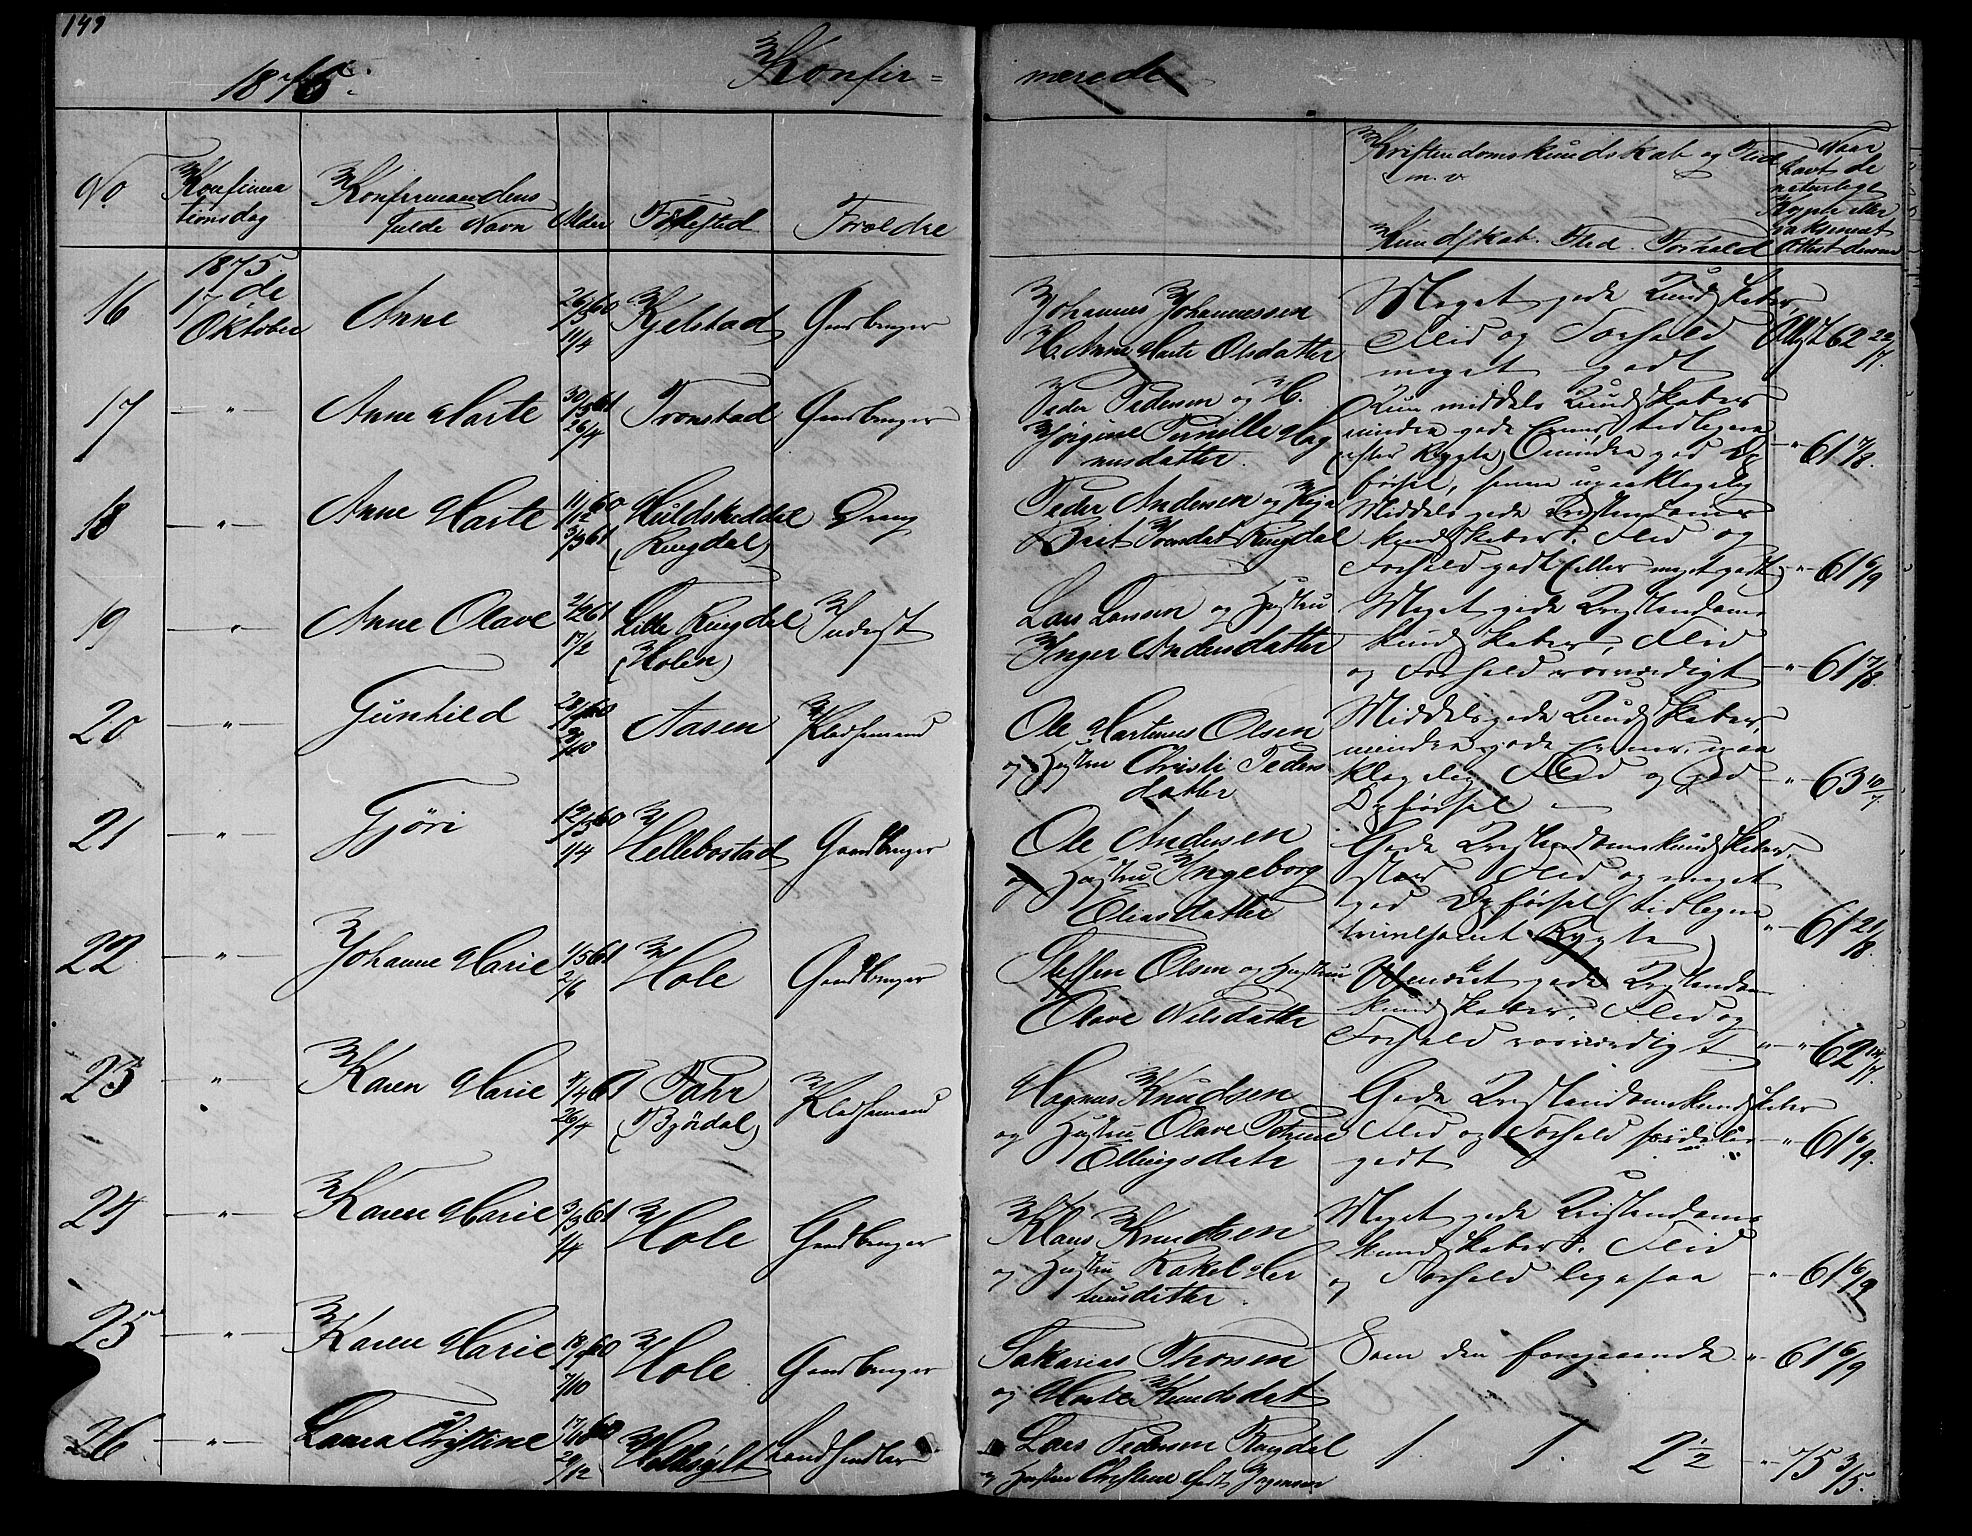 149
1875. Konfir= merede
No
Konfirma
tionsdag
Konfirmandens
fulde Navn
Alder
Fødested
Forældre
Kristendomskundskab og Flid
m. v.
Kundskab. Flid. Forhold
Naar
havt de
naturlige
Kopper eller
vaksineret
Attest derom
16 1875 17de Oktober Anne 26/3 60 11/4 Kjelstad Gaardbruger
Johannes Johannessen
H. Anne Marte Olsdatter
Meget gode Kundskaber,
Flid og Forhold
meget godt
Attest 62 22/7.
17 — " — Anne Marte 30/3 61 26/4 Tronstad Gaardbruger
Peder Pedersen og H.
Jørgine Pernille Mag
nusdatter.
Kun middels Kundskaber
mindre gode Evner, tidligere
(efter Rygte) mindre god Op
førsel, senere upaaklagelig
— " — 61 7/8.
18 — " — Anne Marte 11/12 60 3/3 61 Huldskreddal (Ringdal) Dreng
Peder Andersen og Pige
Brit Iversdat Ringdal
Middels gode Kristendoms
kundskaber. Flid og
Forhold godt (eller meget godt)
— " — 61 6/9
19 — " — Anne Olave 2/2 61 17/2 Lille Ringdal (Holen) Inderst
Lars Larsen og Hustru
Inger Andersdatter
Meget gode Kristendoms
kundskaber, Flid
og Forhold rosværdigt
— " — 61 7/8.
20 — " — Gunhild 28/9 60 /10 Aasen Pladsemand
Ole Martinus Olsen
og Hustru Christi Peders
datter
Middelsgode Kundskaber,
mindre gode Evner, upaa
klagelig Flid og God
Opførsel
— " — 63 10/7
21 — " — Gjøri 12/3 60 1/4 Hellebostad Gaardbruger
Ole Andersen
og Hustru Ingeborg
Eliasdatter
Gode Kristendomskundskaber,
stor Flid og meget
god Opførsel (tidligere
tvivlsomt Rygte)
" 61 21/8.
22 — " — Johanne Marie 1/5 61 2/6 Hole Gaardbruger
Steffen Olsen og Hustru
Olave Nilsdatter
Udmærket gode Kristendoms
kundskaber, Flid og
Forhold rosværdigt.
" " 62 /7.
23 — " — Karen Marie /4 61 26/4 Fahr (Bjørdal) Pladsemand
Magnus Knudsen
og Hustru Olave Petrine
Ellingsdatr
Gode Kristendomskundskaber
Flid og Forhold særdeles
godt
— " — 61 6/9.
24 — " — Karen Marie 3/3 61 1/4 Hole Gaardbruger
Klaus Knudsen
og Hustru Rakel Mar
tinusdatter.
Meget gode Kristendoms
kundskaber. Flid
og Forhold ligesaa
— " — 61 6/9
25 — " — Karen Marie 18/9 60 7/10 Hole Gaardbruger
Sakarias Thorsen
og Marte Knudsdat
Som den foregaaende
" — 61 6/9
26 — " — Laura Chrystine 17/ 60 29/12 Hellesylt Landhandler
Lars Pedersen Ringdal
og Hustru Christine født Jørgensen
1. 1. 2½
— " — 75 3/5.